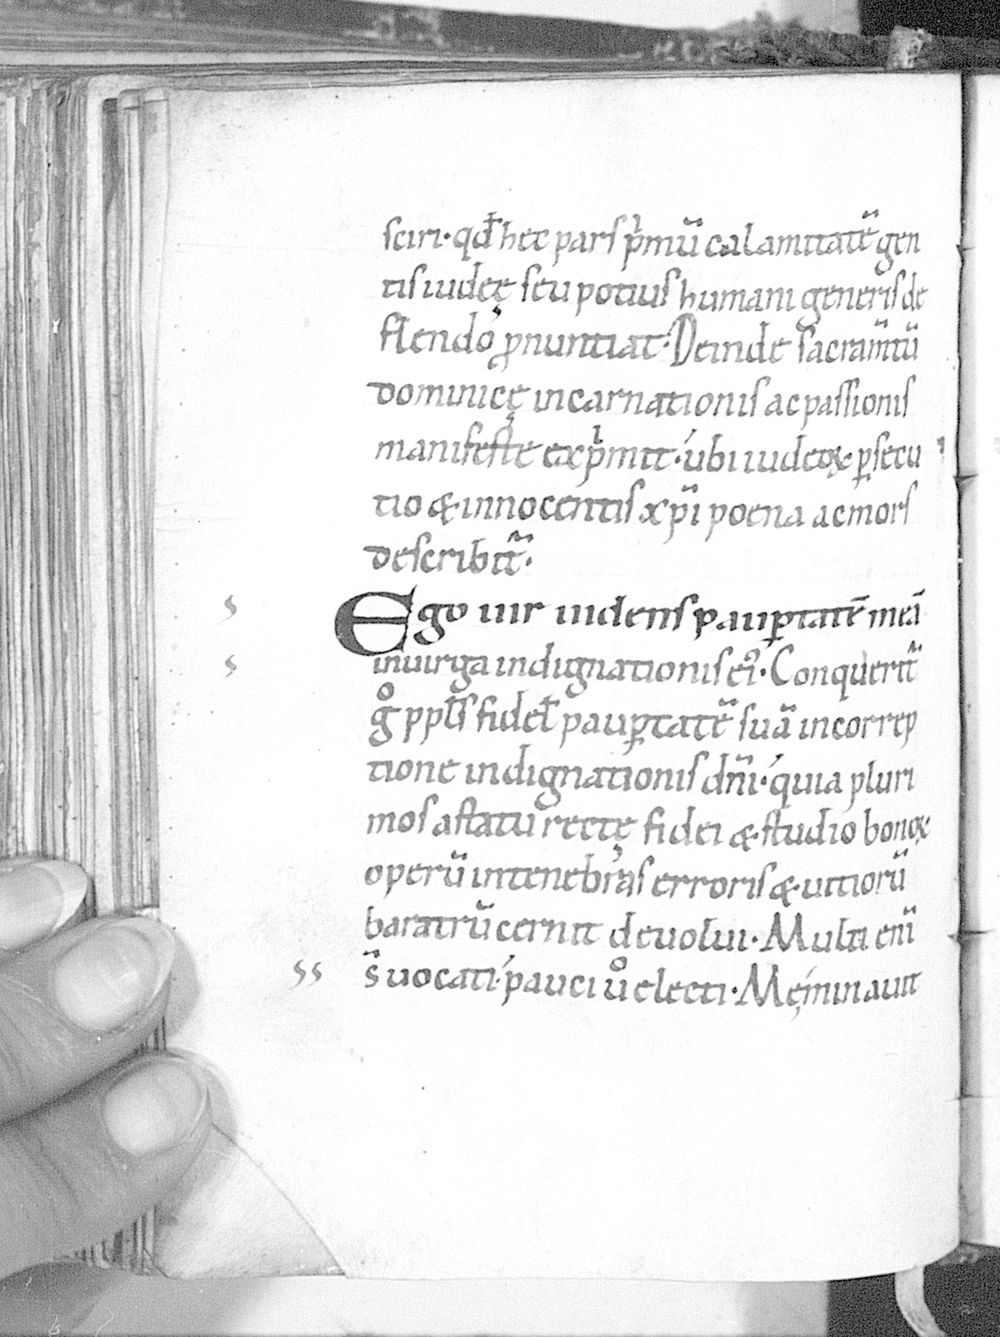 sciri· qđ hec pars p̍mũ calamitatẽ gen
tis iudeę seu potius humani generis de
flendo p̱nuntiat· Deinde sacram̃tũ
dominicę incarnationis ac passionis
manifeste exp̍mit· ubi iudeoꝝ ꝑsecu
tio & innocentis xp̃i poena ac mors
describit̃·
Ego uir uidens pauꝑtatẽ meã
in uirga indignationis ei᷒· Conquerit̃
g° ppl̃s fidel̃ pauꝑtatẽ suã in correp
tione indignationis dñi· quia pluri
mos a statu rectę fidei & studio bonoꝝ
operũ in tenebras erroris & uitiorũ
baratrũ cernit deuolui· Multi eni̅
s̃ uocati· pauci ů electi· Mę minauit